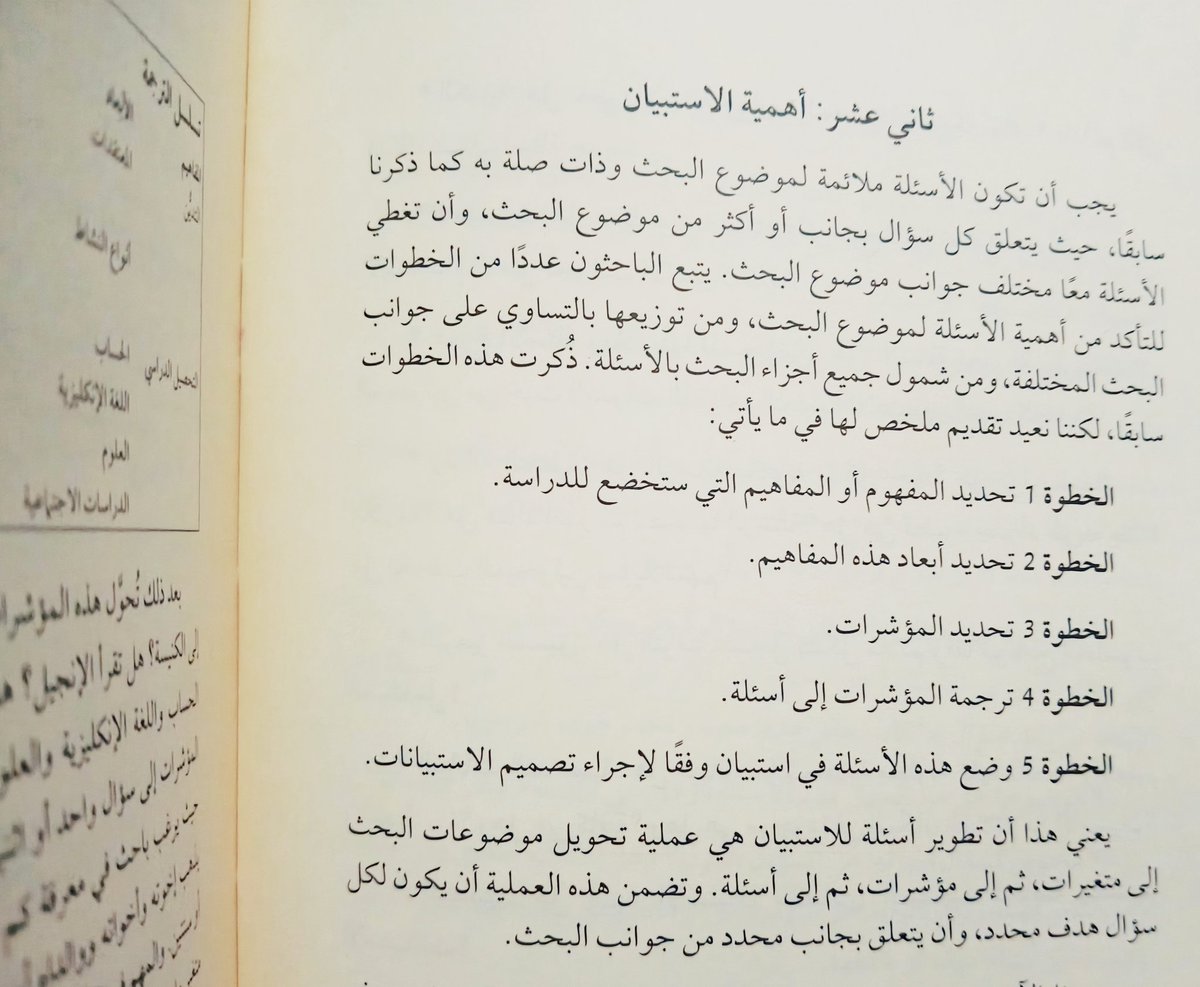 ثاني عشر: أهمية الاستبيان
يجب أن تكون الأسئلة ملائمة لموضوع البحث وذات صلة به كما ذكرنا
سابقًا، حيث يتعلق كل سؤال بجانب أو أكثر من موضوع البحث، وأن تغطي
الأسئلة معًا مختلف جوانب موضوع البحث. يتبع الباحثون عددًا من الخطوات
للتأكد من أهمية الأسئلة لموضوع البحث، ومن توزيعها بالتساوي على جوانب
البحث المختلفة، ومن شمول جميع أجزاء البحث بالأسئلة. ذُكرت هذه الخطوات
سابقًا، لكننا نعيد تقديم ملخص لها في ما يأتي:
الخطوة 1 تحديد المفهوم أو المفاهيم التي ستخضع للدراسة.
الخطوة 2 تحديد أبعاد هذه المفاهيم.
الخطوة 3 تحديد المؤشرات.
الخطوة 4 ترجمة المؤشرات إلى أسئلة.
الخطوة 5 وضع هذه الأسئلة في استبيان وفقًا لإجراء تصميم الاستبيانات.
يعني هذا أن تطوير أسئلة للاستبيان هي عملية تحويل موضوعات البحث
إلى متغيرات، ثم إلى مؤشرات، ثم إلى أسئلة. وتضمن هذه العملية أن يكون لكل
سؤال هدف محدد، وأن يتعلق بجانب محدد من جوانب البحث.
الترجمة
الأبعاد
المعتقدات
أنواع النشاط
الحساب
التحصيل الدراسي
اللغة الإنكليزية
العلوم
الدراسات الاجتماعية
بعد ذلك تُحوَّل هذه المؤشرات
إلى الكنيسة؟ هل تقرأ الإنجيل؟
الحساب واللغة الإنكليزية والعلوم
المؤشرات إلى سؤال واحد أو
حيث يرغب باحث في معرفة كم